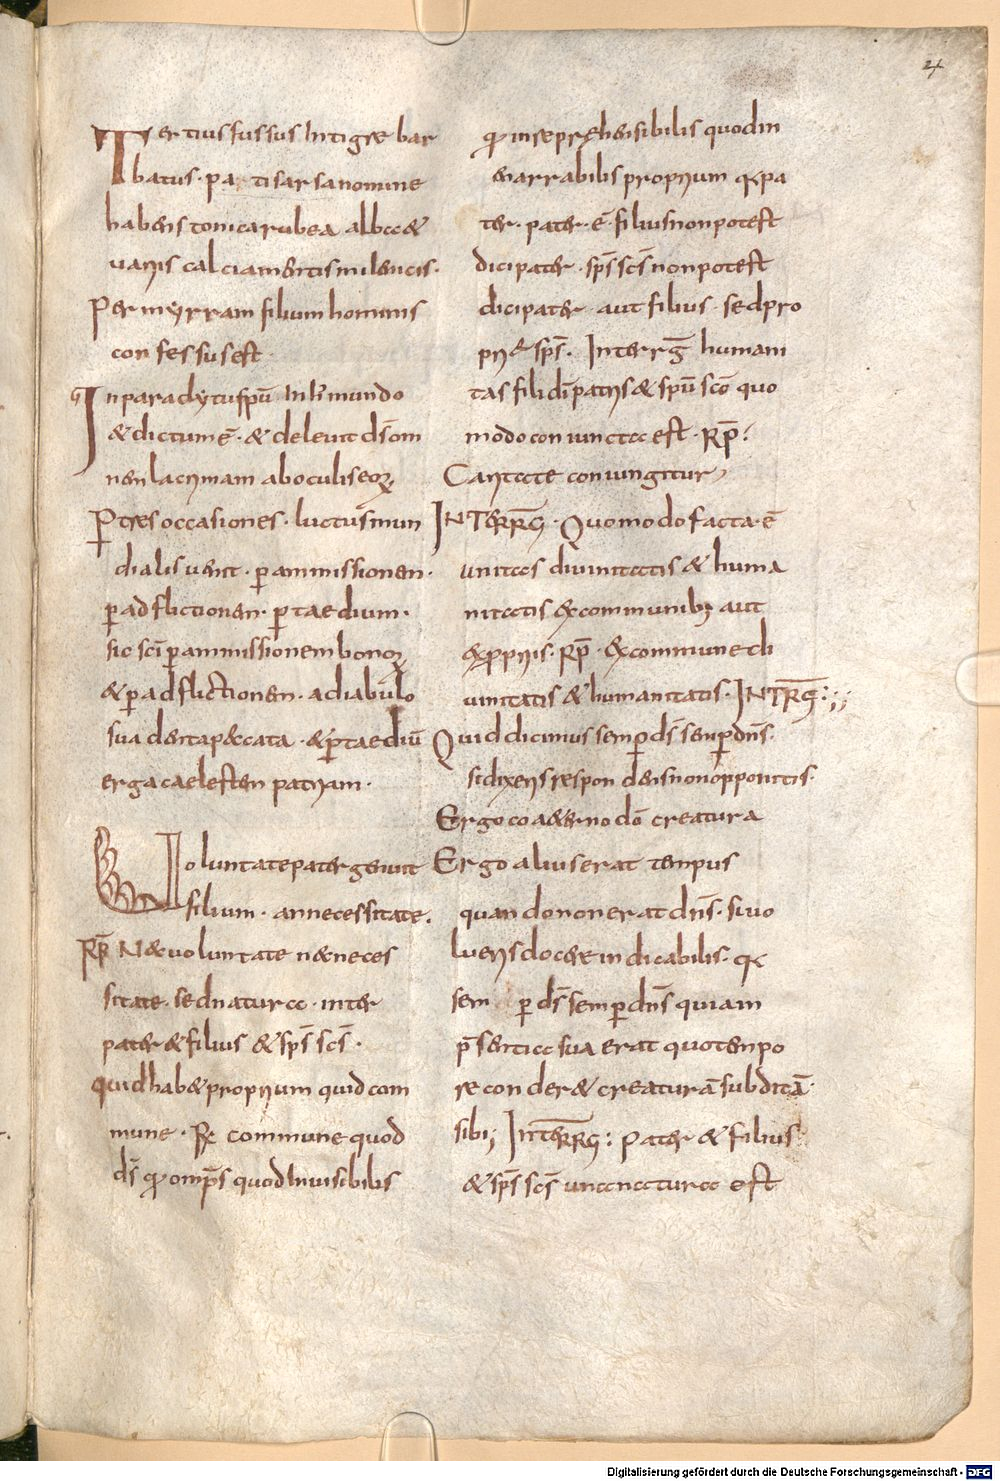 4
Tertius fussus Intigre bar
batus · pa tisarsa nomine
habens tonica rubea albec&
uariis calciamentis milencis ·
Per myrram filium hominis
confessus est ·
In paradytuspū In hoc mundo
& dictum ē · & deleuit ds̄ om
nen lacrimam ab oculis eoꝝ
P tres occasiones · luctus mun
dialis uenit · ꝑ ammissionen ·
ꝑ adflictionen · ꝑ taedium ·
sic sc̄i ꝑ ammissionem bonoꝝ
& ꝑ adflictionen · a diabulo
sua dentap&cata · & ꝑ taediū
erga caelesten patriam ·
Uoluntate pater genuit
filium · an necessitate ·
Rp̄ N& uoluntate n& neces
sitate · sed natura · inter
pater & filius & sp̄s sc̄s ·
quid hab& proprium quid com
mune · R commune quod
ds̄ qđ omp̄s quod Inuisibilis
qđ inrepręhensibilis quod in
enarrabilis proprium qđ pa
ter · pater · ē · filius non potest
dici pater · sp̄s sc̄s non potest
dici pater · aut filius · sed pro
prie sp̄s · Interrḡ humani
tas fili dī patris & spū scō quo
modo coniuncta est · Rp̄:
Caritate coniungitur,
INTERRḠ · Quomodo facta · ē
unitas diuinitatis & huma
nitatis & communibꝫ aut
& ꝓpriis · Rp̄ · & commune di
uinitatis & humanitatis · INTRḠ:;;
Quid dicimus semꝑ ds̄ semꝑ dn̄s ·
si dixeris respondens non opponitis ·
Ergo coaeterno dō creatura
Ergo aliuserat tempus
quando non erat dn̄s · si uo
lueris docere indicabilis · qđ
sem ꝑ ds̄ semꝑ dn̄s quiam
p̄sentia sua erat quo tenpo
re conder& creaturā subditā ·
sibi; Interrḡ: Pater & filius
& sp̄s sc̄s una natura est
Digitalisierung gefördert durch die Deutsche Forschungsgemeinschaft - DFG